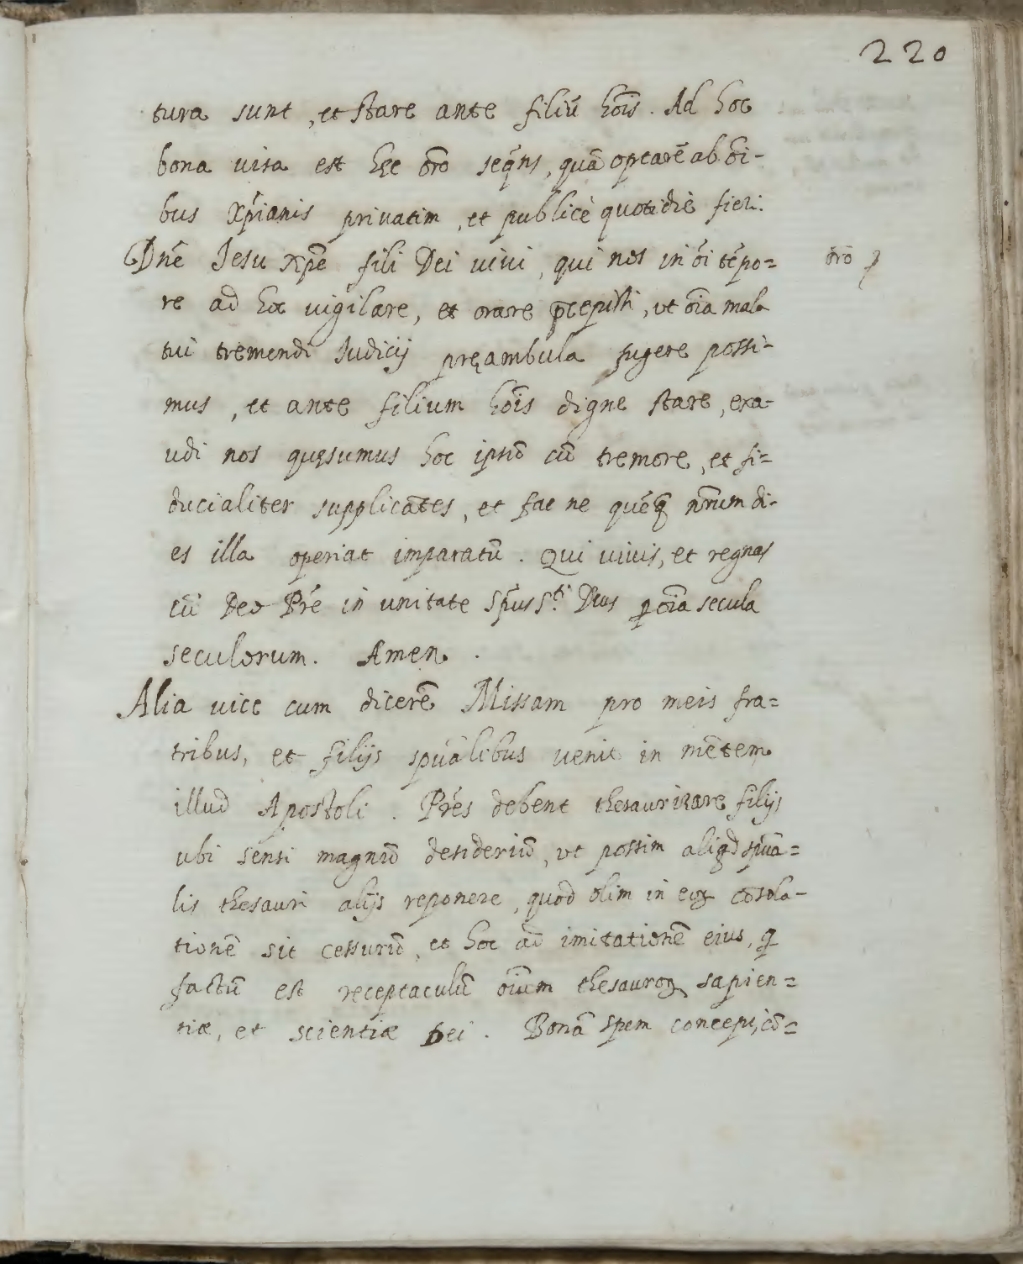 220
tura sunt, et stare ante filiū hoīs. Ad hoc
bona uisa est hęc ōro seq̄ns, quā optarē ab oī-
bus Xp̄ianis priuatim, et publicè quotidiè fieri.
Dnē Jesu Xpē fili Dei uiui, qui nos in oī tēpo=
re ad hoc uigilare, et orare p̄cepisti, ut oīa mala
tui tremendi Judicij pręambula fugere possi-
mus, et ante filium hoīs digne stare, exa-
udi nos quęsumus hoc ipsū cū tremore, et fi=
ducialiter supplicātes, et fac ne quēq̨ nr̄um di-
es illa operiat imparatū. Qui uiuis, et regnas
cū Deo Prē in unitate Sp̄us S.ti Deus ꝑ oīa secula
seculorum. Amen.
ōro
Alia uice cum dicerē Missam pro meis fra=
tribus, et filijs spūalibus uenit in mētem
illud Apostoli. Prēs debent thesaurizare filijs
ubi sensi magnū desideriū, ut possim aliqd spūa=
lis thesauri alijs reponere, quod olim in eoꝝ cōsola-
tionē sit cessurū, et hoc ad imitationē eius, q̄
factū est receptaculū oīum thesauroꝝ sapien=
tiæ, et scientiæ Dei. Bonā spem concepi, cō=